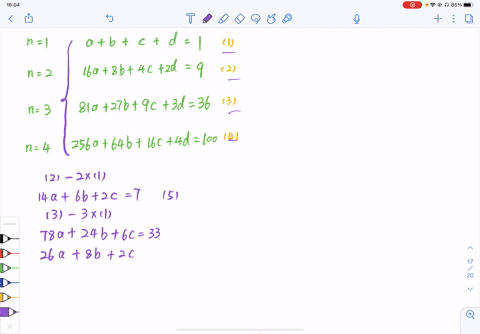 16:04
85%
n=1 a+b+c+d=1 (1)
n=2 16a+8b+4c+2d=9 (2)
n=3 81a+27b+9c+3d=36 (3)
n=4 256a+64b+16c+4d=100 (4)
(2)-2×(1)
14a+6b+2c=7 (5)
(3)-3×(1)
78a+24b+6c=33
26a+8b+2c
17
/
20